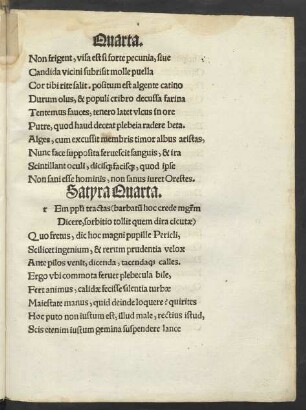 Quarta.
Non frigent, visa est si forte pecunia, siue
Candida vicini subrisit molle puella
Cor tibi rite salit. positum est algente catino
Durum olus, & populi cribro decussa farina
Tentemus fauces, tenero latet vlcus in ore
Putre, quod haud deceat plebeia radere beta.
Alges, cum excussit membris timor albus aristas,
Nunc face supposita feruescit sanguis, & ira
Scintillant oculi, dicisq; facisq;, quod ipse
Non sani esse hominis, non sanus iuret Orestes.
Satyra Quarta.
r Em ppli tractas (barbatū hoc crede mgr̄m
Dicere, sorbitio tollit quem dira cicutæ)
Quo fretus, dic hoc magni pupille Pericli,
Scilicet ingenium, & rerum prudentia velox
Ante pilos venit, dicenda, tacendaq; calles.
Ergo vbi commota feruet plebecula bile,
Fert animus, calidæ fecisse silentia turbæ
Maiestate manus, quid deinde loquere? quirites
Hoc puto non iustum est, illud male, rectius istud,
Scis etenim iustum gemina suspendere lance